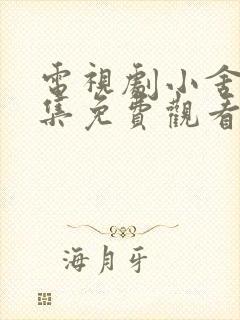 電視劇小舍
集免費觀看
海月牙